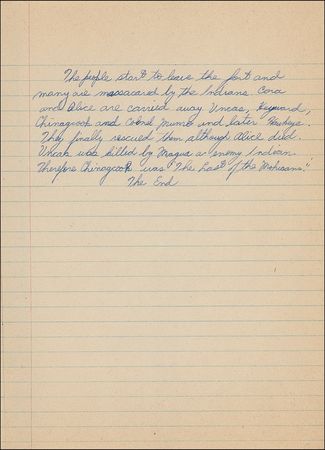 The people start to leave the fort and
many are massacared by the Indians. Cora
and Alice are carried away. Uncas, Heyward,
Chinagcook and Colonel Munro and later Hawkeye.
They finally rescued them although Alice died.
Uncas was killed by Magua a enemy Indian.
Therefore Chinagcook was "The Last of the Mohicans."
The End